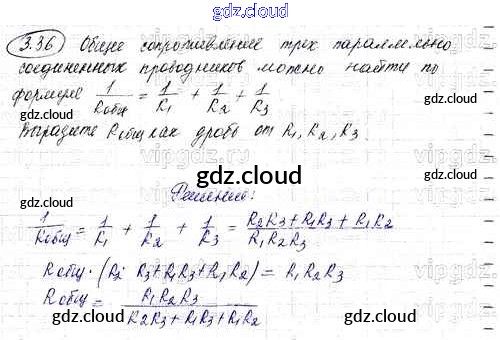 gdz.cloud
3.36 Общее сопротивление трех параллельно
соединенных проводников можно найти по
формуле 1/Rобщ = 1/R1 + 1/R2 + 1/R3
Выразите Rобщ как дробь от R1, R2, R3
gdz.cloud
vipgdz.ru
gdz.cloud
Решение:
1/Rобщ = 1/R1 + 1/R2 + 1/R3 = (R2R3 + R1R3 + R1R2)/(R1R2R3)
Rобщ · (R2 R3 + R1R3 + R1R2) = R1R2R3
Rобщ = R1R2R3/(R2R3 + R1R3 + R1R2)
gdz.cloud
gdz.cloud